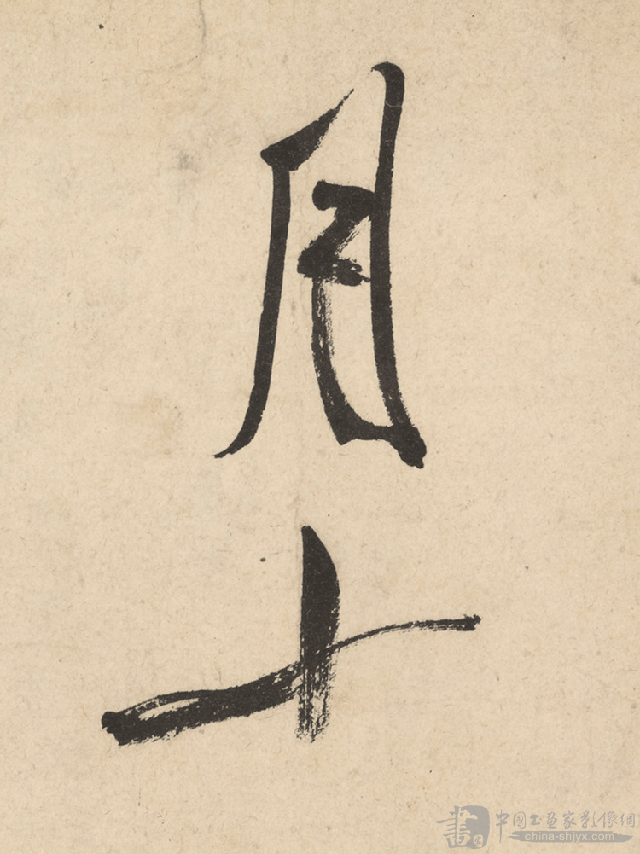 月十
書 中国书画家影像網
china-shjyx.com